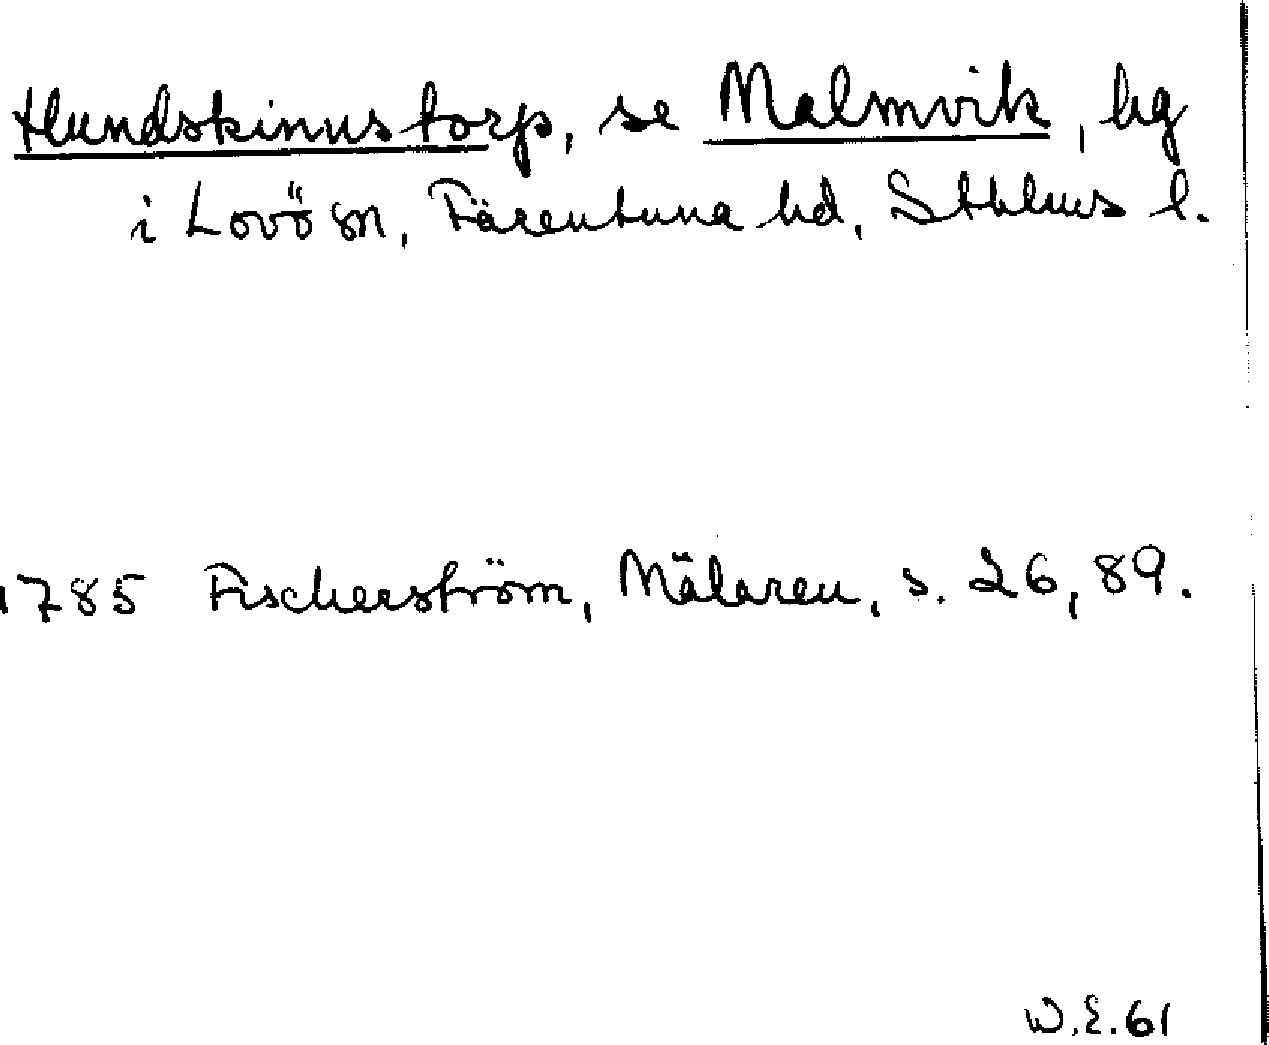 Hundskinnstorp, se Malmvik, hg
i Lovö sn, Färentuna hd, Sthlms l.
1785 Fischerström, Mälaren, s. 26, 89.
W.E.61